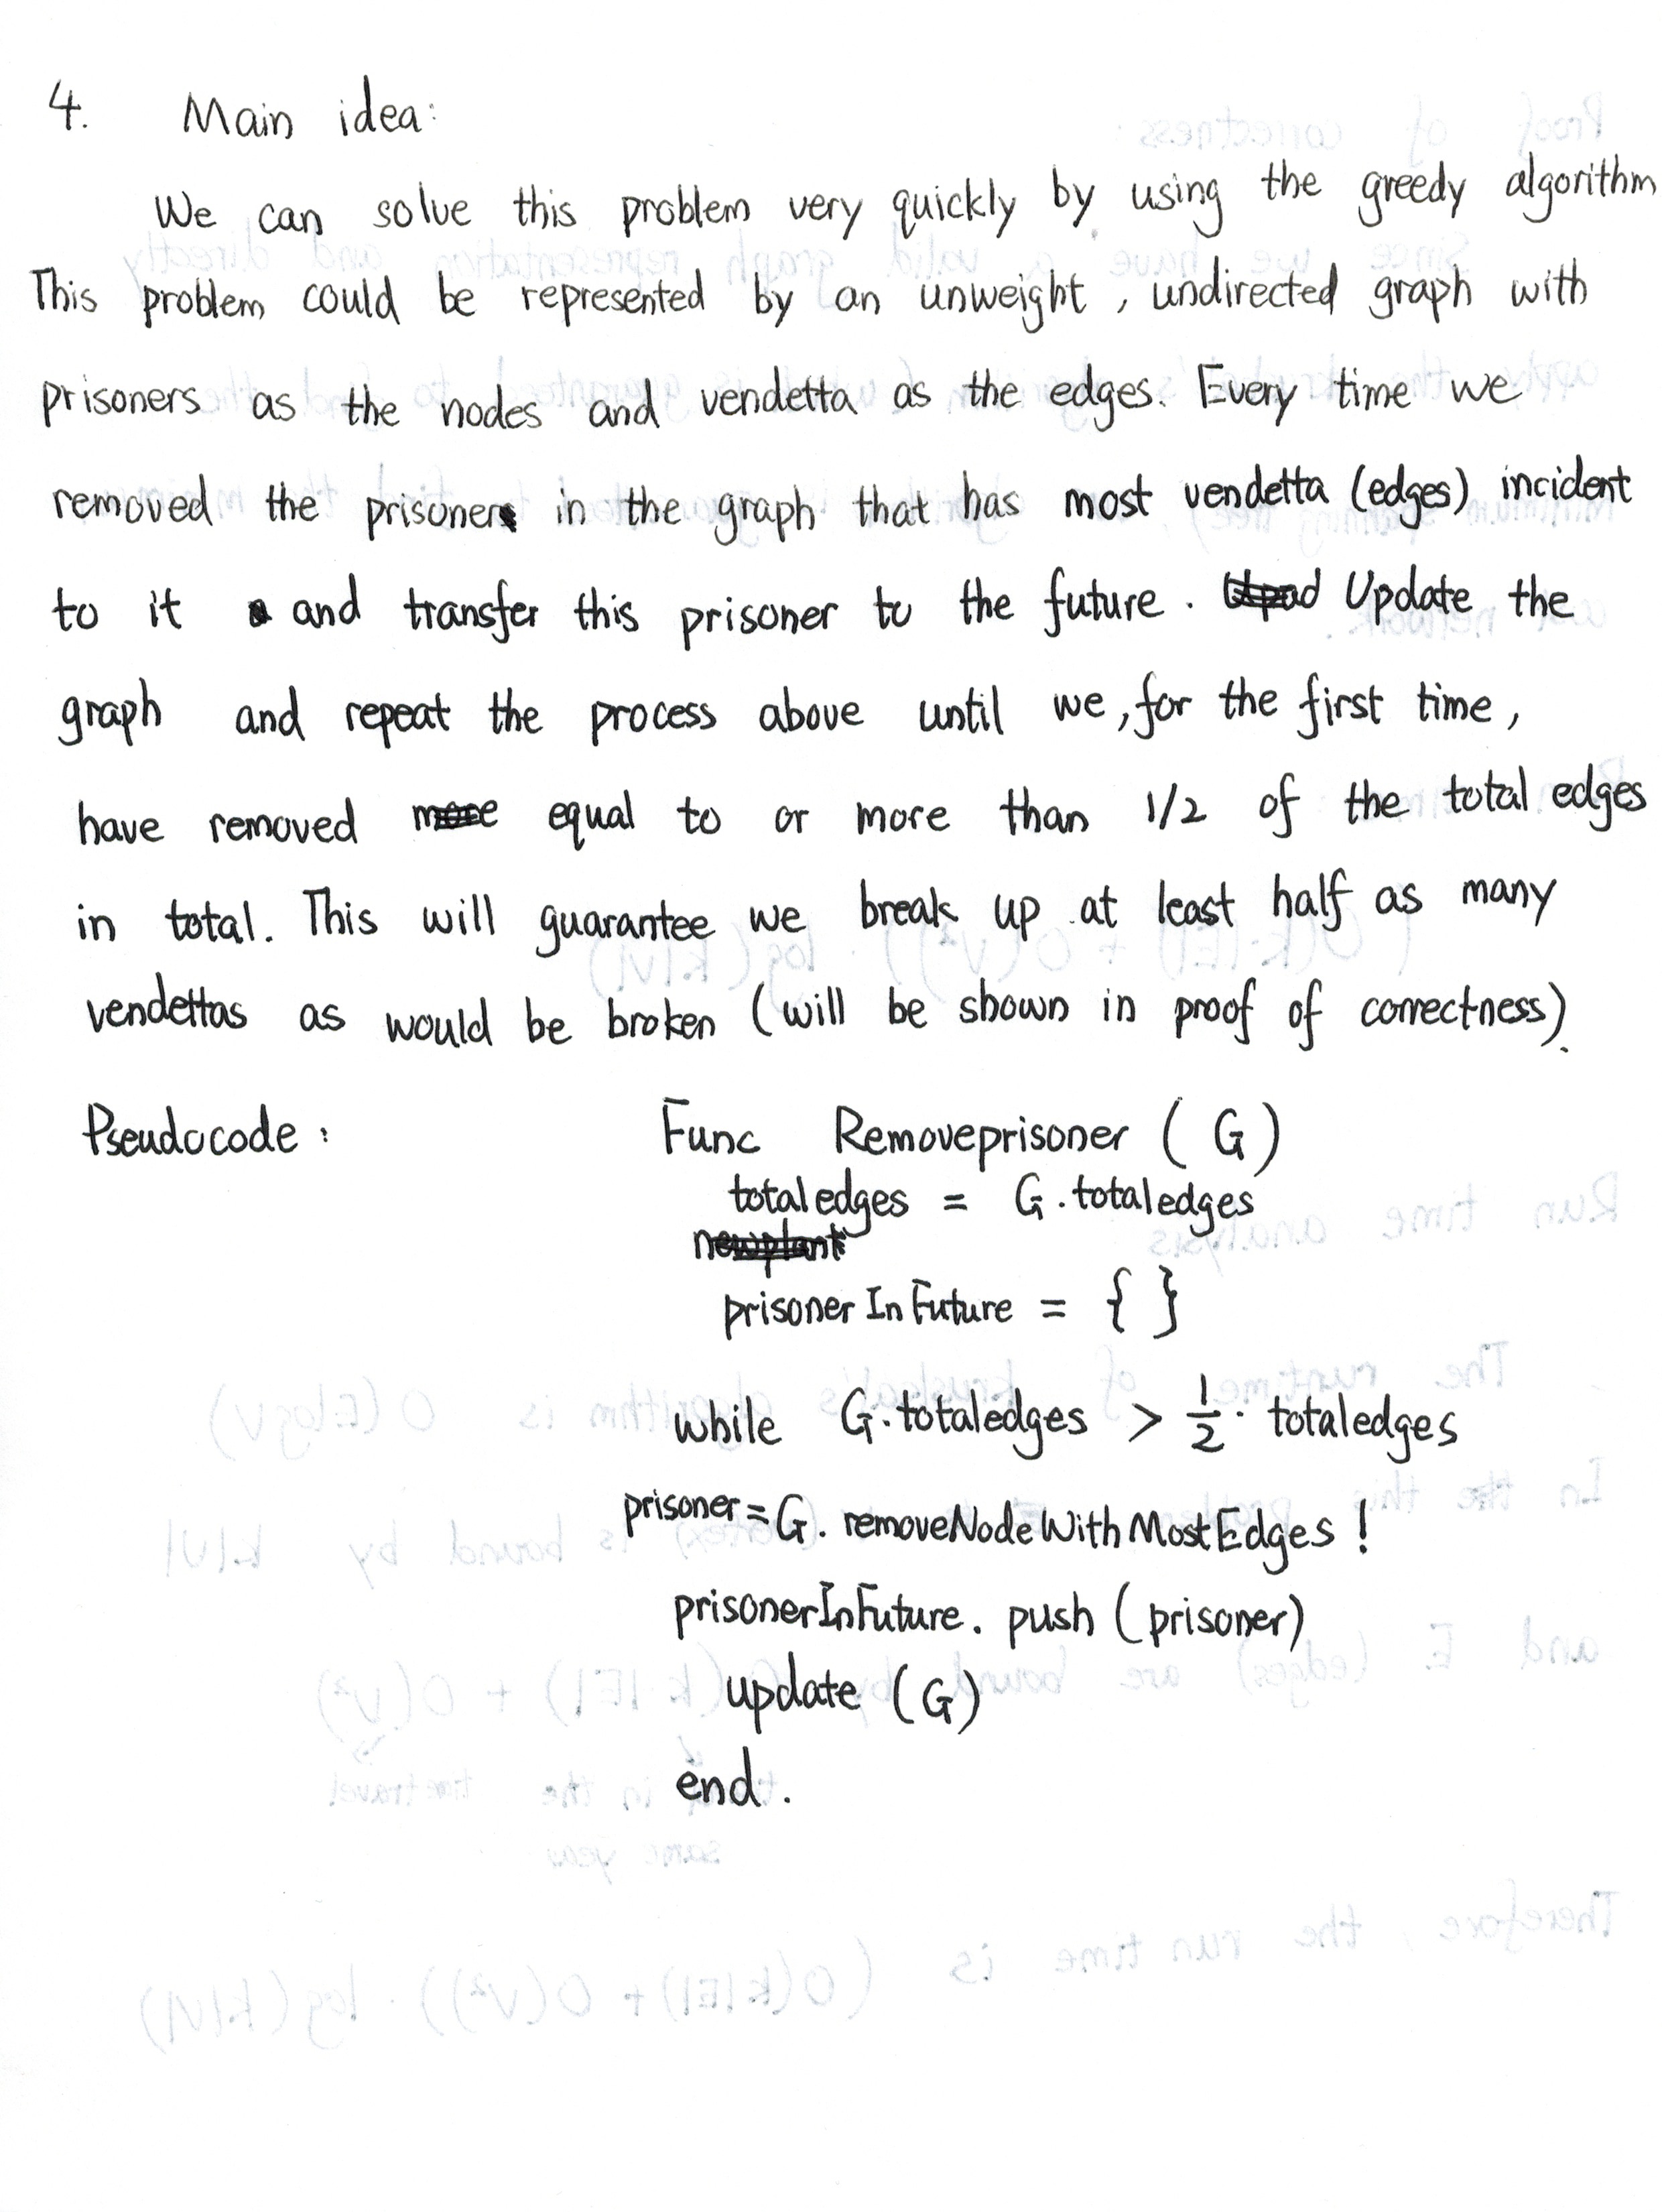 4. Main idea:
We can solve this problem very quickly by using the greedy algorithm
This problem could be represented by an unweight, undirected graph with
prisoners as the nodes and vendetta as the edges. Every time we
removed the prisoner in the graph that has most vendetta (edges) incident
to it and transfer this prisoner to the future. Update the
graph and repeat the process above until we, for the first time,
have removed equal to or more than 1/2 of the total edges
in total. This will guarantee we break up at least half as many
vendettas as would be broken (will be shown in proof of correctness).
Pseudocode: Func Removeprisoner (G)
totaledges = G.totaledges
prisonerInFuture = { }
while G.totaledges > 1/2 · totaledges
prisoner = G.removeNodeWithMostEdges!
prisonerInFuture.push (prisoner)
update (G)
end.